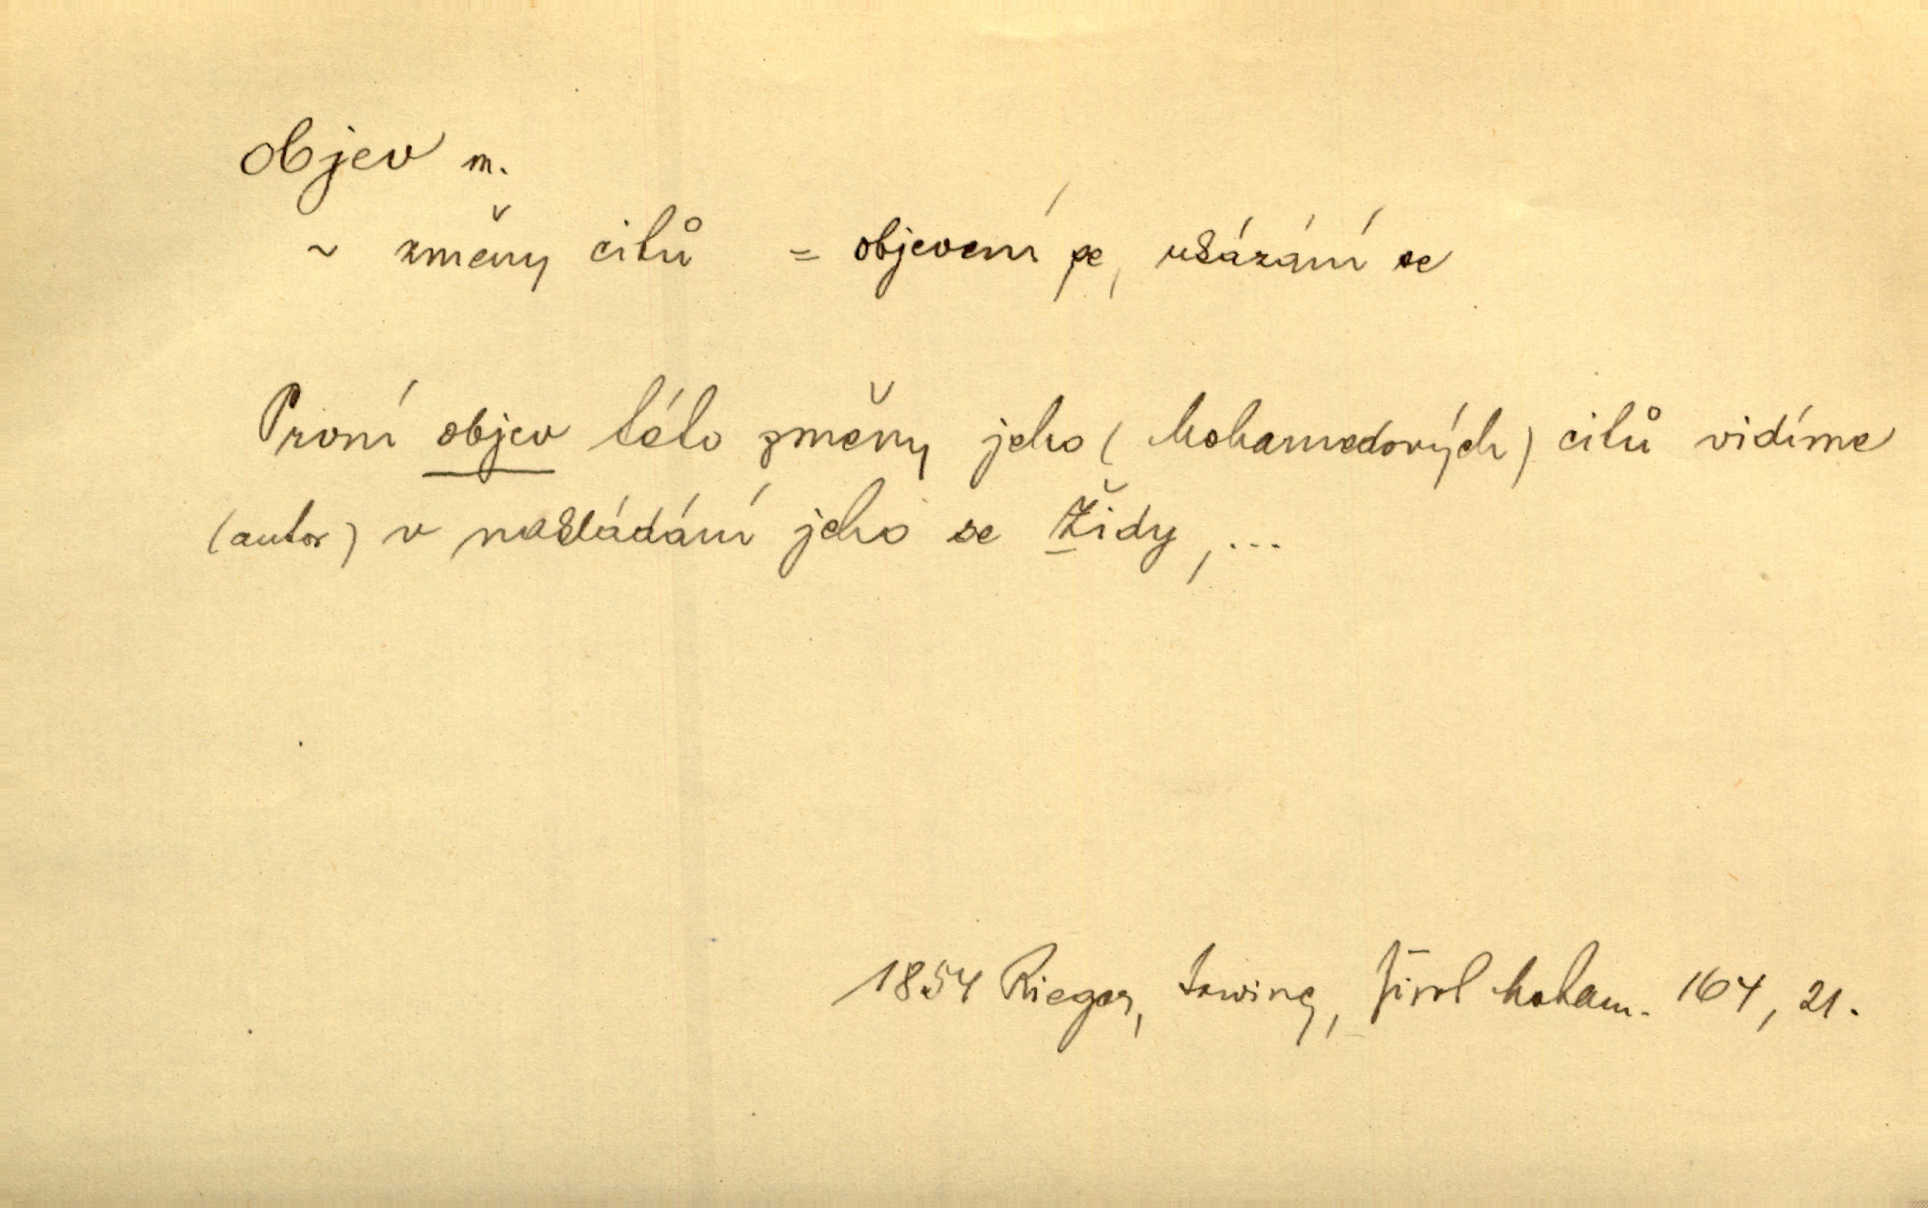 objev m.
~ změny citů = objevení se, ukázání se
První objev této změny jeho (Mohamedových) citů vidíme
(autor) v nakládání jeho se Židy, ...
1854 Rieger, Irwing, Živol Moham. 164, 21.